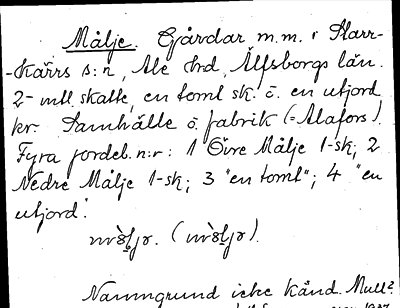 Målje. Gårdar m.m. i Starr-
-kärrs s:n, Ale hd, Älfsborgs län.
2- mtl skatte, en tomt sk. o. en utjord
kr. Samhälle o. fabrik (= Alafors).
Fyra jordeb.n:r: 1 Övre Målje 1-sk; 2
Nedre Målje 1-sk; 3 "en tomt"; 4 "en
utjord".
Namngrund icke känd. Mull?